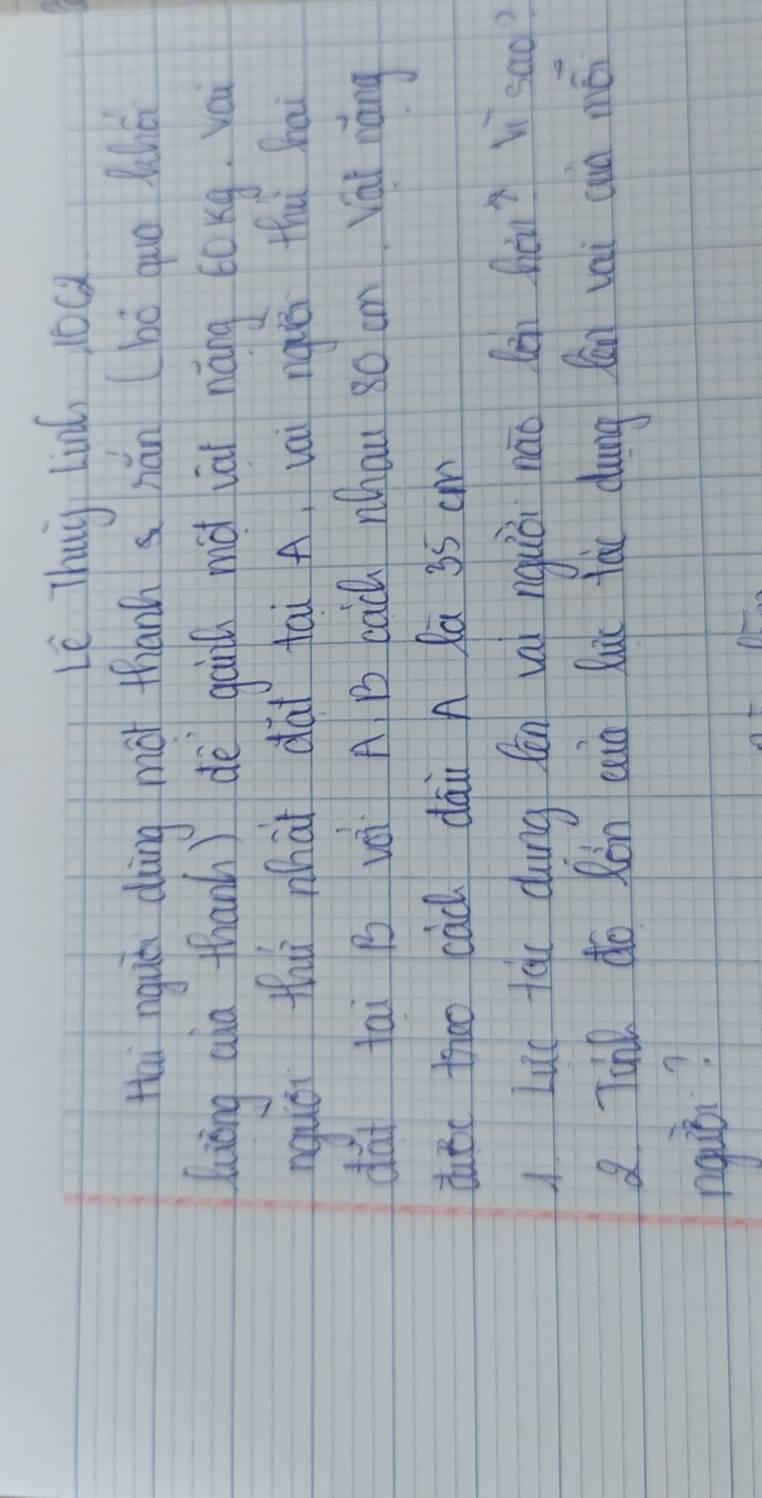 Lê Thùy Linh 10C2
Hai người dùng một thanh rắn (bỏ qua khối
lượng của thanh) để gánh một vật nặng 60 kg. Vai
người thứ nhất đặt tại A, vai người thứ hai
đặt tại B với A, B cách nhau 80 cm. Vật nặng
được treo cách đầu A là 35 cm
1. Lực tác dụng lên vai người nào lớn hơn? Vì sao?
2. Tính độ lớn của lực tác dụng lên vai của mỗi
người?